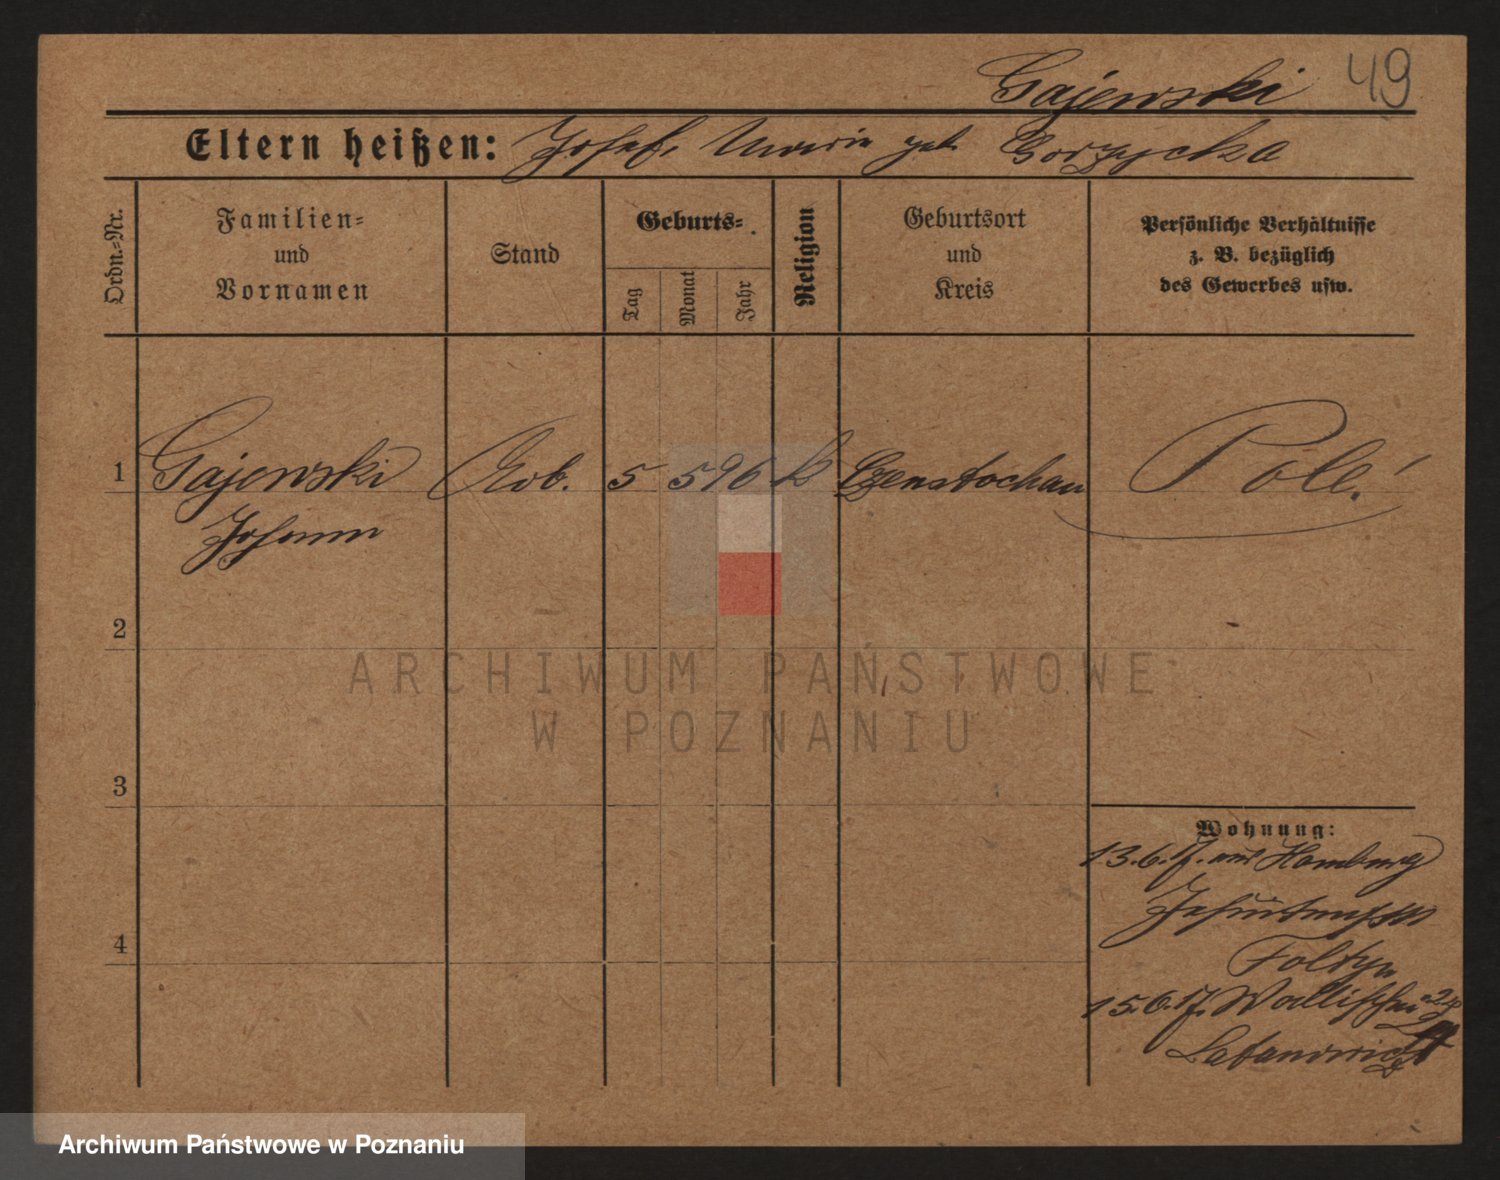 Gajewski 49
Eltern heißen: Josef, Maria geb. Gorzycka
Ordn.=Nr.
Familien=
und
Vornamen
Stand
Geburts=
Tag
Monat
Jahr
Religion
Geburtsort
und
Kreis
Persönliche Verhältnisse
z. B. bezüglich
des Gewerbes usw.
1 Gajewski Arb. 5 5 96 k Czenstochau Pole!
Johann
2
ARCHIWUM PAŃSTWOWE
W POZNANIU
3
Wohnung:
13.6.17. aus Hamburg
4
Foltyn
15.6.17. Wallischei
Archiwum Państwowe w Poznaniu